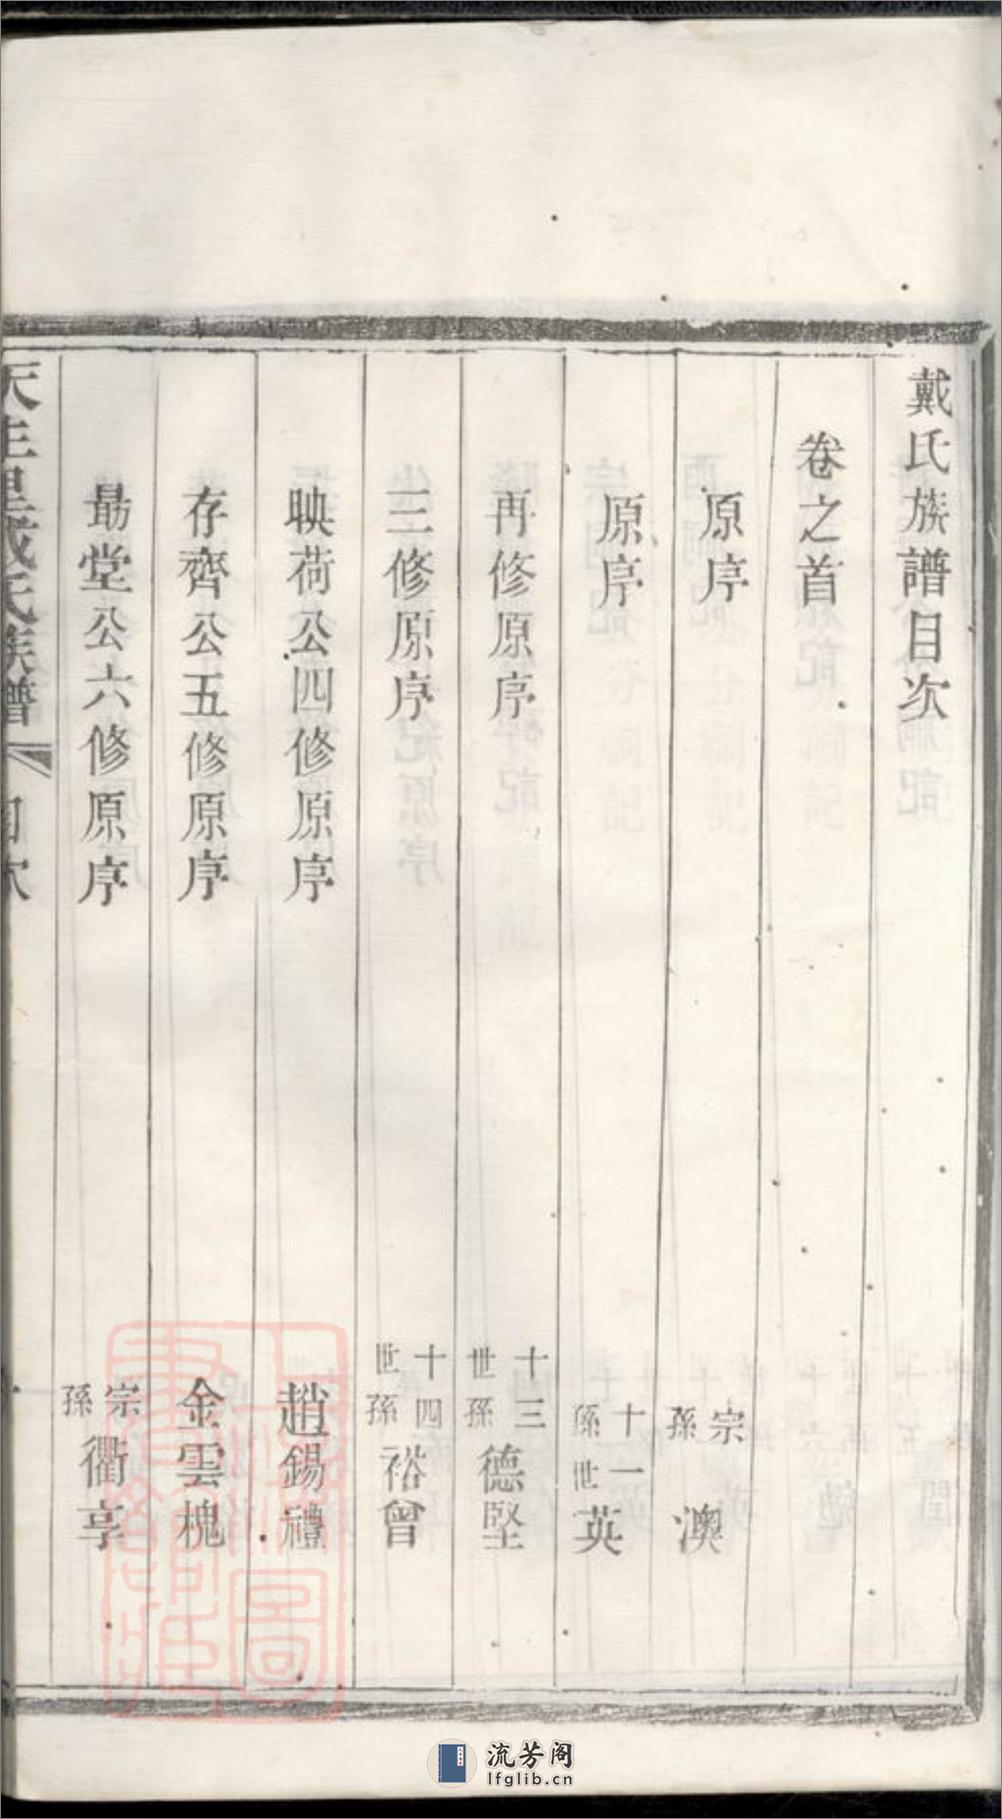 戴氏族譜目次
卷之首
原序 宗孫 澳
原序 十一世孫 英
再修原序 十三世孫 德堅
三修原序 十四世孫 裕曾
映荷公四修原序 趙錫禮
存齊公五修原序 金雲槐
勗堂公六修原序 宗孫 衢亨
氏族譜 目次
流芳阁
lfglib.cn